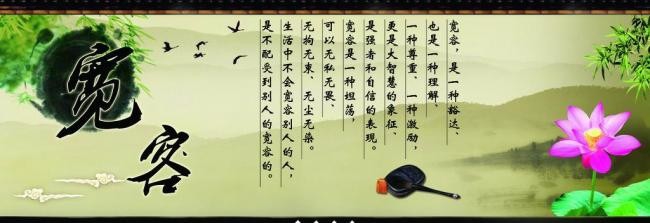 宽容
宽容，是一种豁达、
也是一种理解、
一种尊重、一种激励，
更是大智慧的象征、
是强者和自信的表现。
宽容是一种坦荡，
可以无私无畏、
无拘无束、无尘无染。
生活中不会宽容别人的人，
是不配受到别人的宽容的。